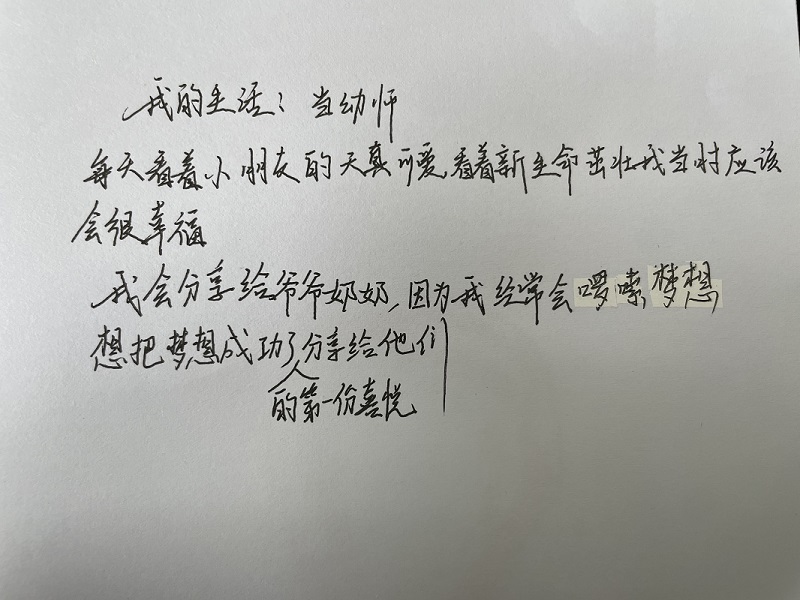 我的生活：当幼师
每天看着小朋友的天真可爱，看着新生命茁壮我当时应该
会很幸福
我会分享给爷爷奶奶，因为我经常会啰嗦梦想
想把梦想成功了分享给他们
的第一份喜悦